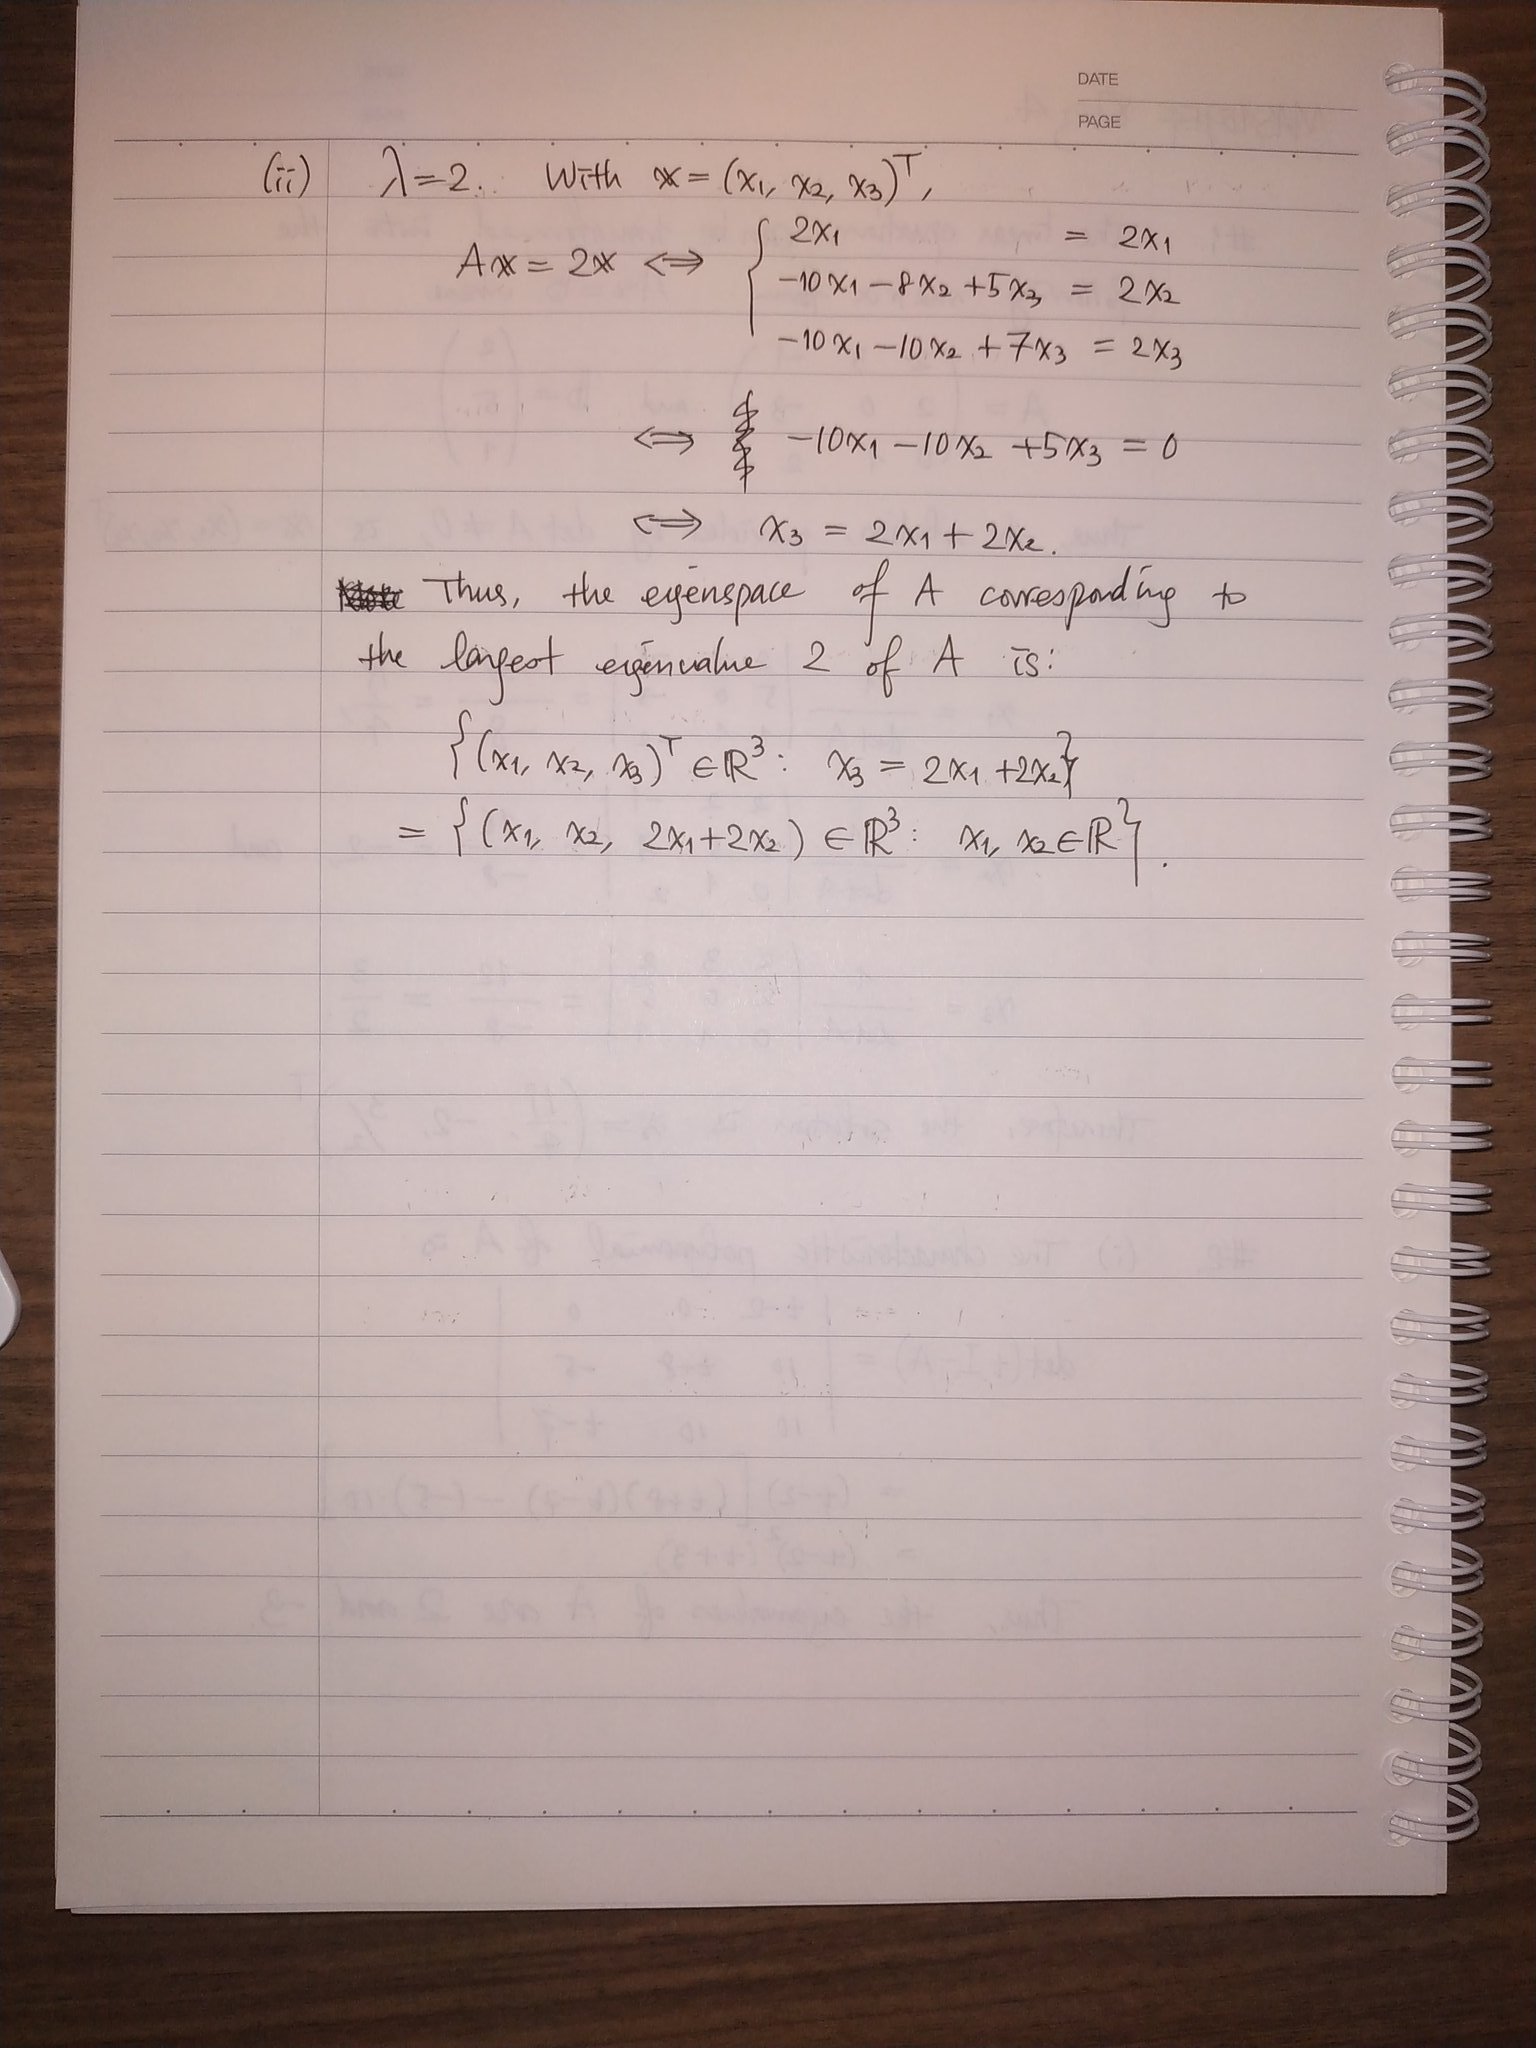 DATE
PAGE
(ii) λ=2. With x = (x₁, x₂, x₃)ᵀ,
Ax = 2x ⟺ { 2x₁ = 2x₁
-10x₁ - 8x₂ + 5x₃ = 2x₂
-10x₁ - 10x₂ + 7x₃ = 2x₃
⟺ -10x₁ - 10x₂ + 5x₃ = 0
⟺ x₃ = 2x₁ + 2x₂.
Thus, the eigenspace of A corresponding to
the largest eigenvalue 2 of A is:
{(x₁, x₂, x₃)ᵀ ∈ ℝ³ : x₃ = 2x₁ + 2x₂}
= {(x₁, x₂, 2x₁+2x₂) ∈ ℝ³ : x₁, x₂ ∈ ℝ}.